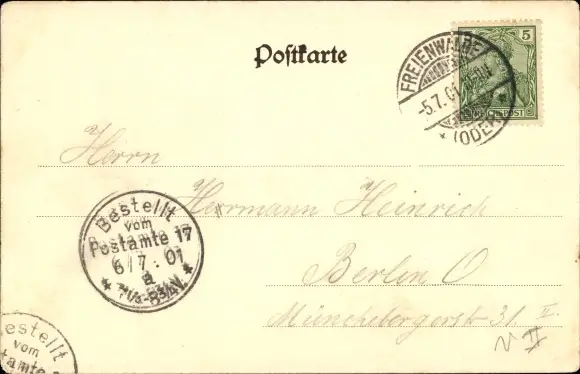 Postkarte
5
FREIENWALDE
-5.7.01
* (ODER) *
Herrn
Herrmann Heinrich
Berlin O
Münchebergerst 31. II.
II
Bestellt
vom
Postamte 17
6/7.01
Bestellt
vom